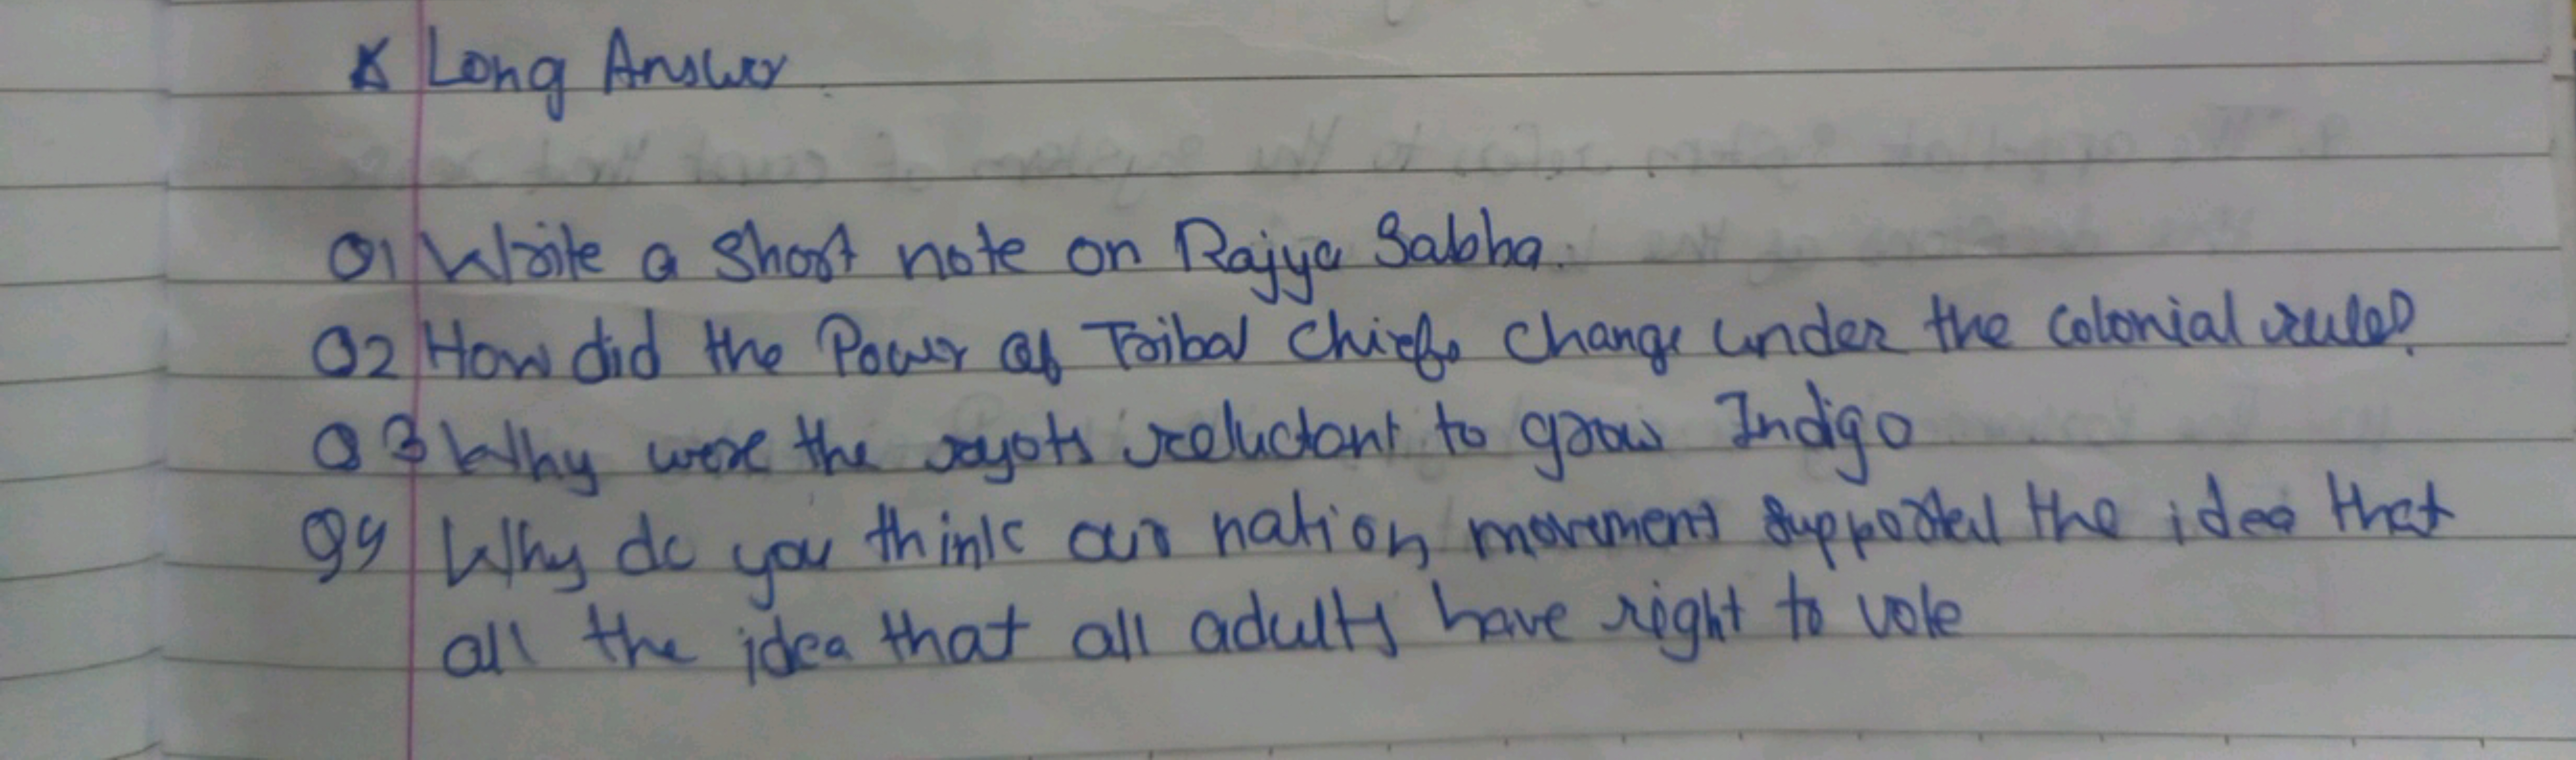 * Long Answer
Q1 Write a short note on Rajya Sabha.
Q2 How did the Power of Tribal Chiefs change under the colonial rule?
Q3 Why were the ryots reluctant to grow Indigo
Q4 Why do you think our nation movement supported the idea that
all the idea that all adults have right to vote